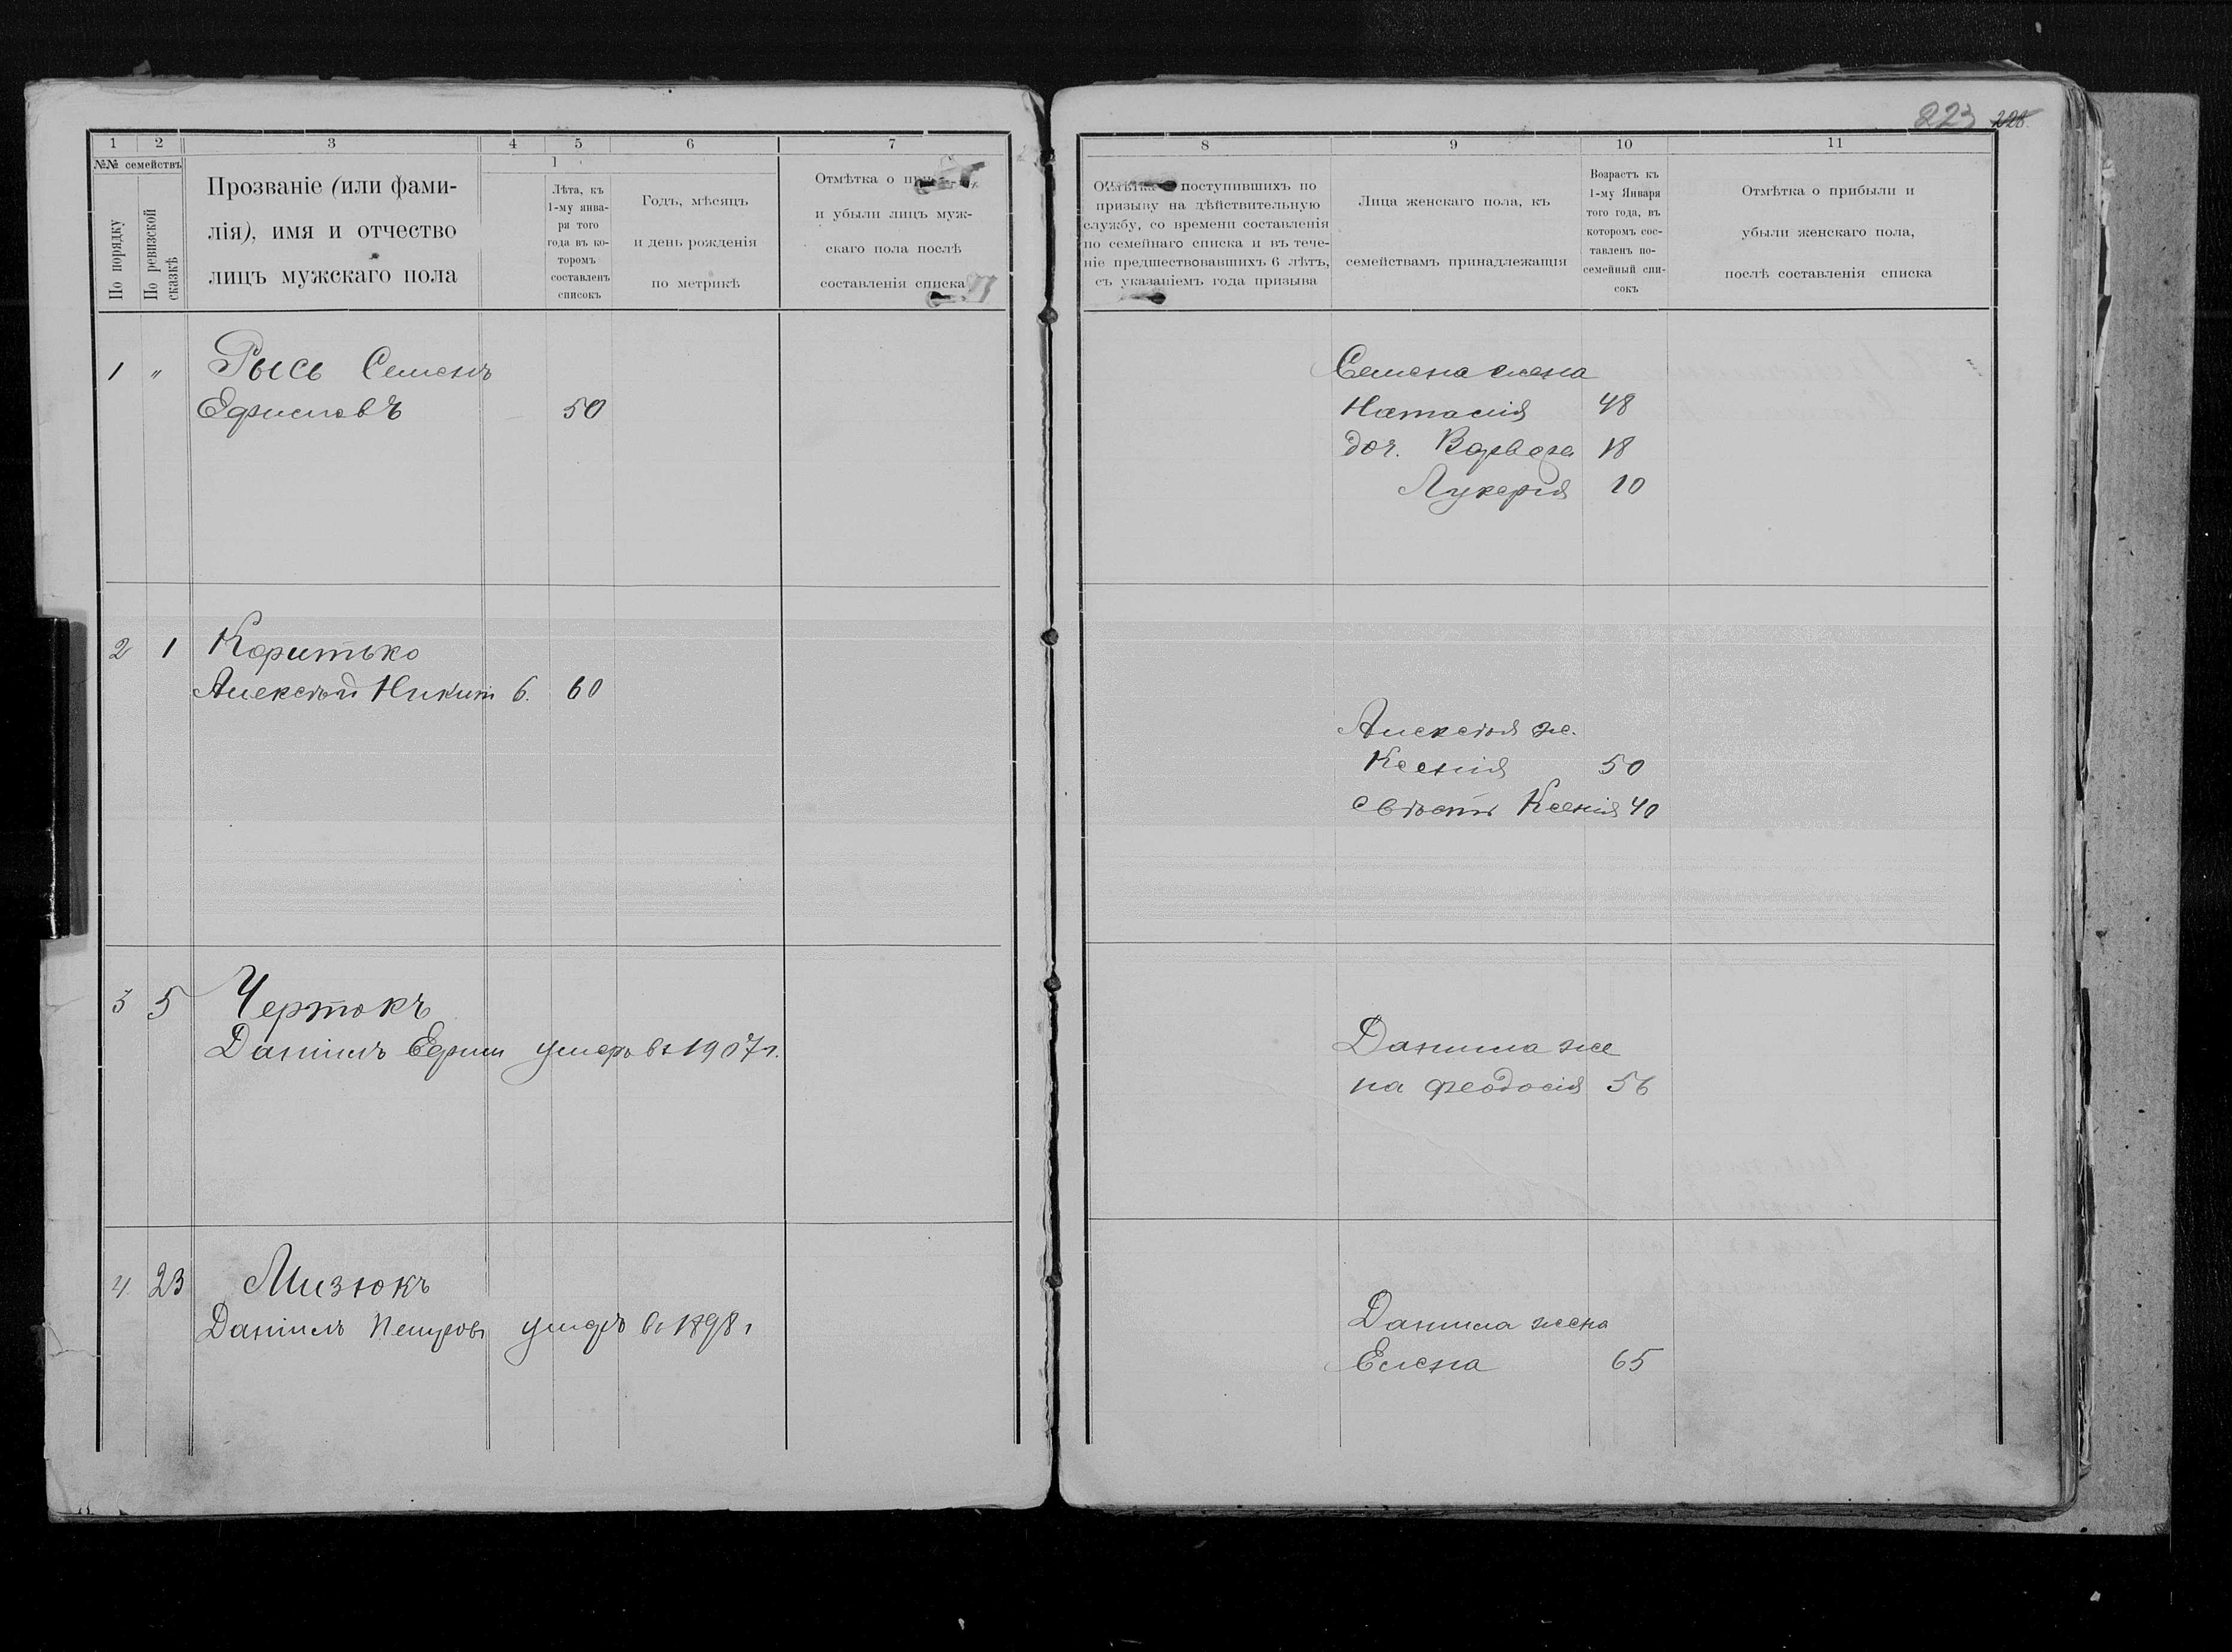 223 228
1 2 3 4 5 6 7
№№ семействъ
По порядку
По ревизской сказкѣ
Прозваніе (или фами-
лія), имя и отчество
лицъ мужскаго пола
Лѣта, къ
1-му янва-
ря того
года въ ко-
торомъ
составленъ
списокъ
Годъ, мѣсяцъ
и день рожденія
по метрикѣ
Отмѣтка о
и убыли лицъ муж-
скаго пола послѣ
составленія списка
1 " Рысь Семенъ
Ефимовъ 50
2 1 Коритько
Алексѣй Никит 6. 60
3 5 Чертокъ
Даніилъ Ефим умеръ въ 1907 г.
4 23 Мизюкъ
Даніилъ Петровъ умеръ въ 1898 г
8 9 10 11
Отмѣтка поступившихъ по
призыву на дѣйствительную
службу, со времени составленія
по семейнаго списка и въ тече-
ніе предшествовавшихъ 6 лѣтъ,
съ указаніемъ года призыва
Лица женскаго пола, къ
семействамъ принадлежащія
Возрастъ къ
1-му Января
того года, въ
которомъ сос-
тавленъ по-
семейный спи-
сокъ
Отмѣтка о прибыли и
убыли женскаго пола,
послѣ составленія списка
Семена жена
Наталія 48
доч. Варвара 18
Лукерія 10
Алексѣя ж.
Ксенія 50
свѣсть Ксенія 40
Данила же
на Феодосія 56
Данила жена
Елена 65